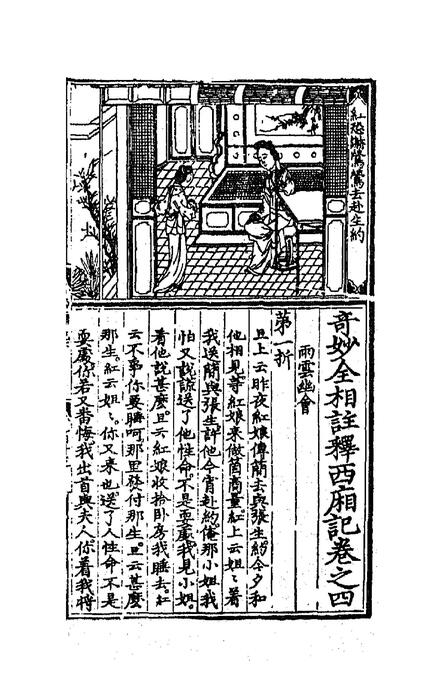 紅恐㘕鶯鶯去赴生約
奇妙全相註釋西廂記卷之四
雨雲幽會
第一折
旦上云昨夜紅娘傳簡去與張生約今夕和
他相見等紅娘來做箇商量紅上云姐〻着
我送簡與張生許他今宵赴約俺那小姐我
怕又說謊送了他性命不是耍處我見小姐
看他說甚麼旦云紅娘收拾卧房我睡去紅
云不爭你要睡呵那里發付那生旦云甚麼
那生紅云姐〻你又來也送了人性命不是
耍處你若又番悔我出首與夫人你着我將